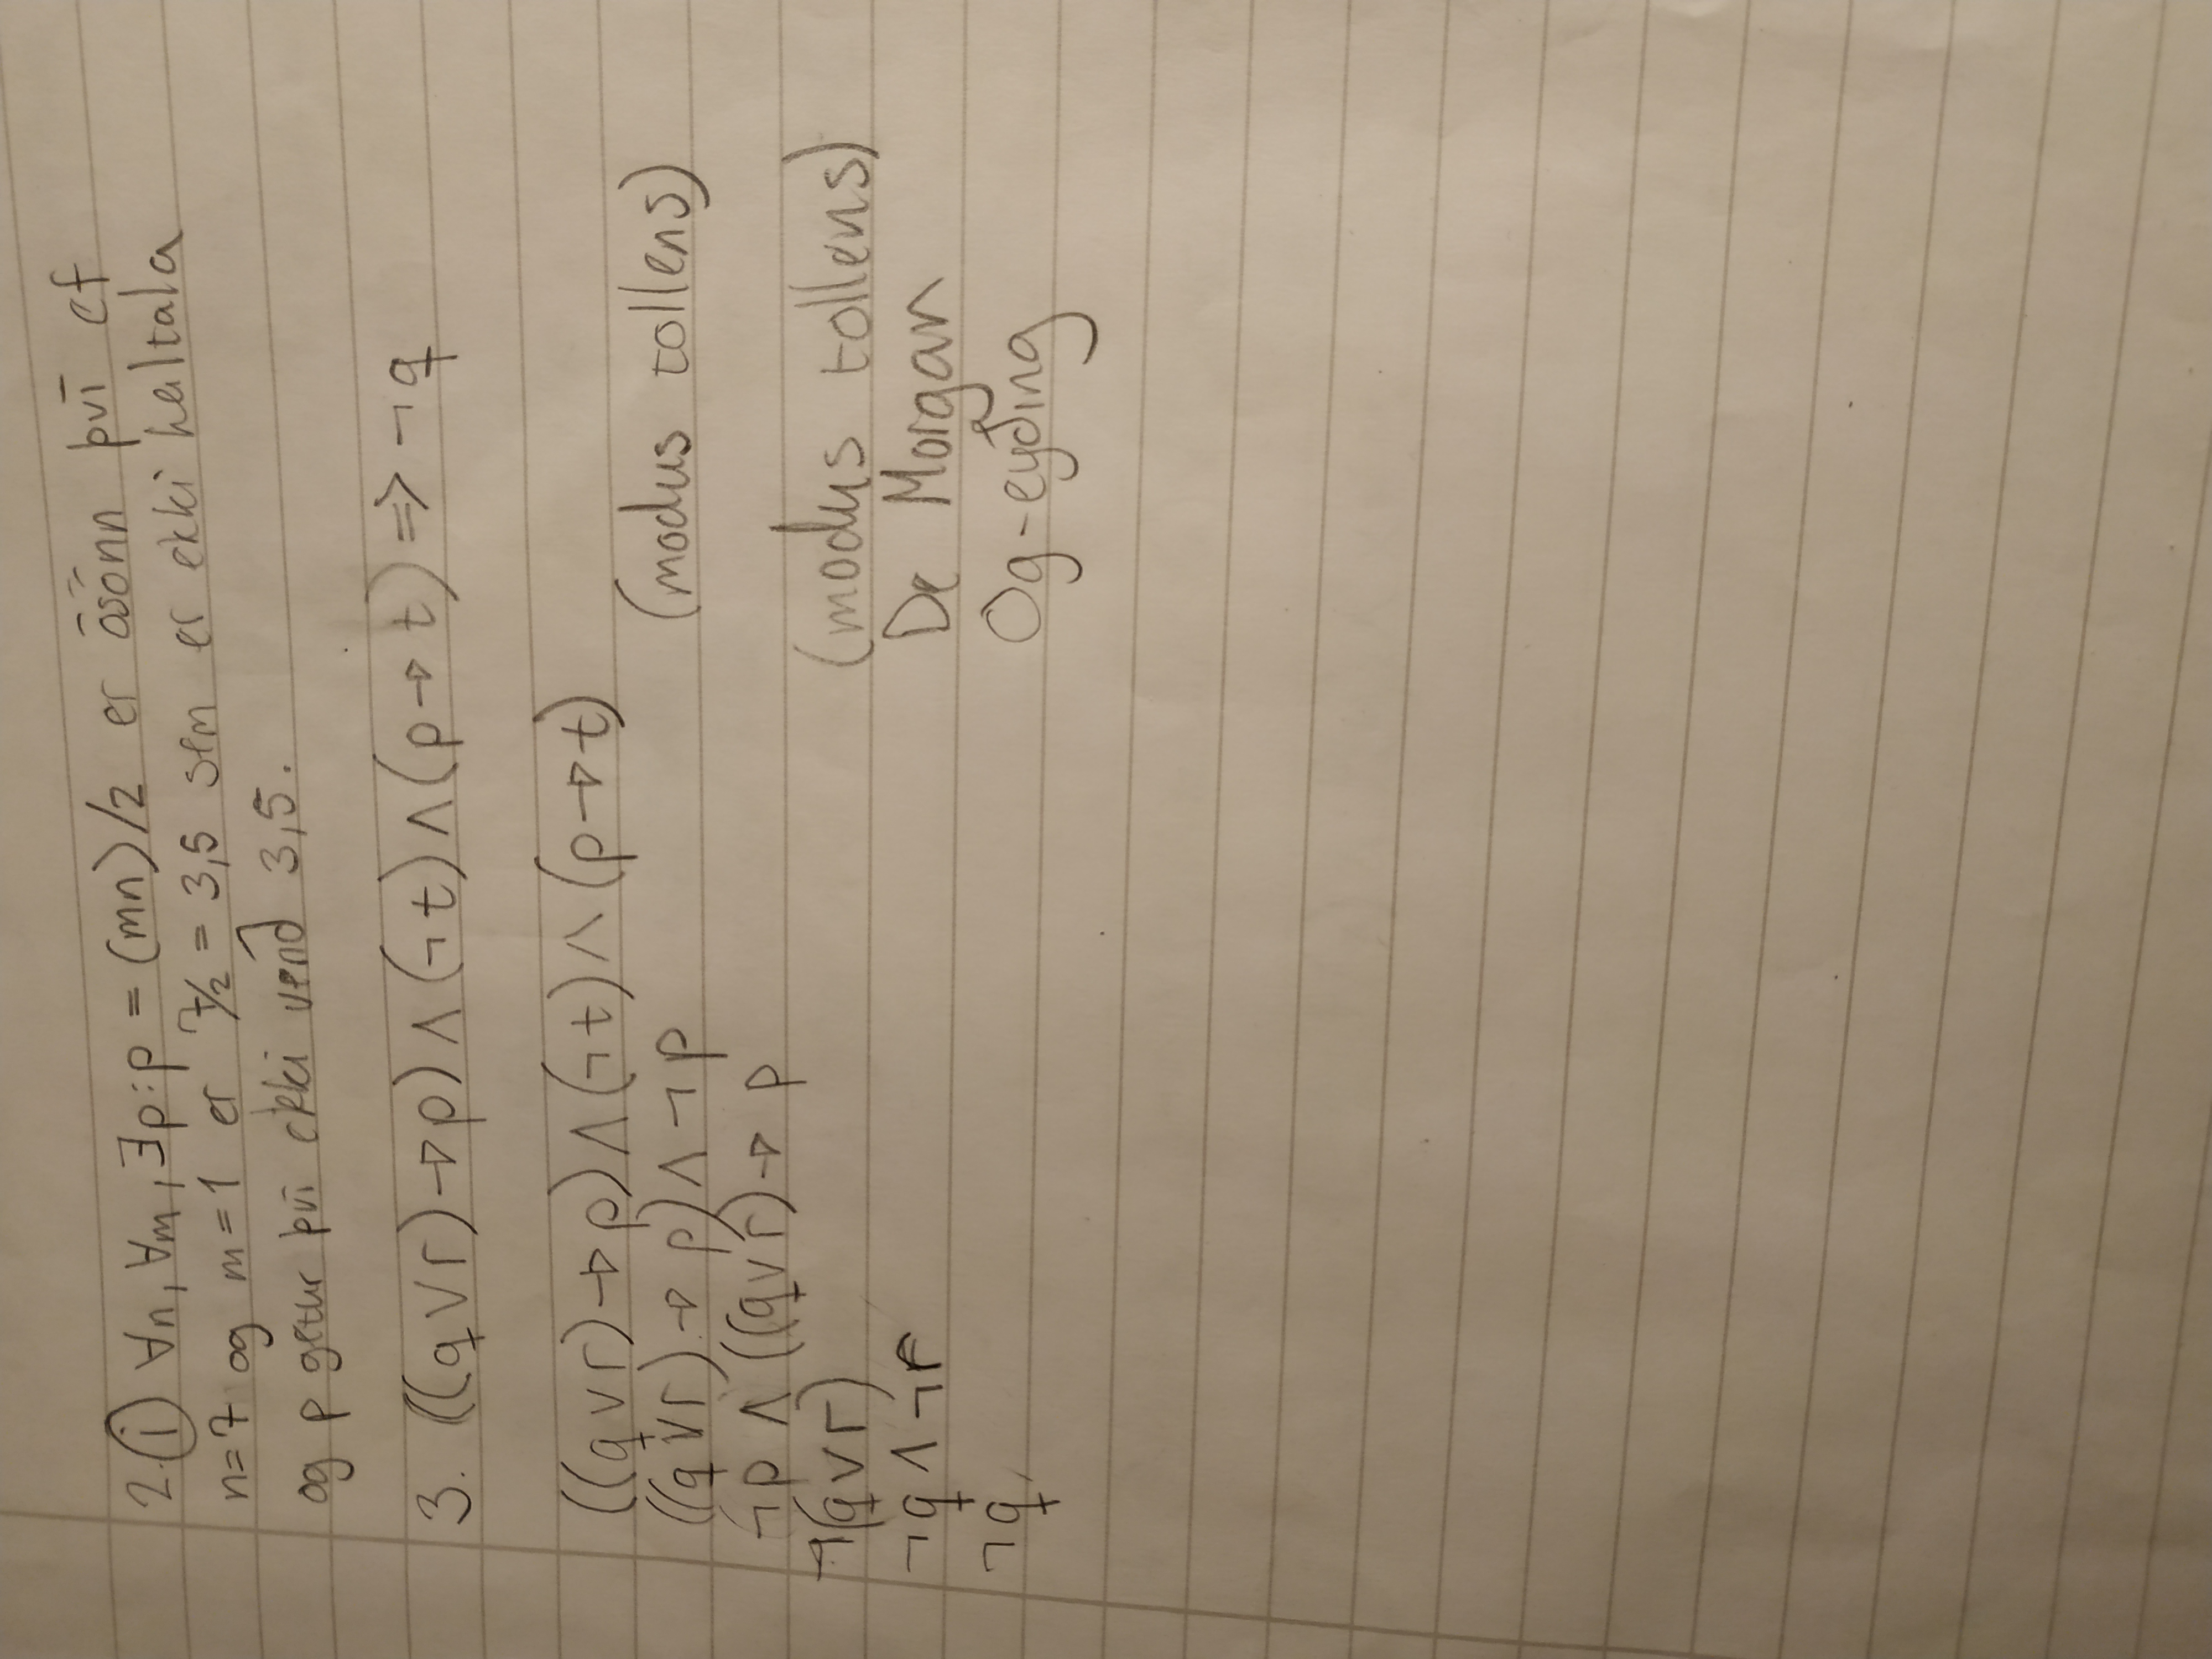 2. i ∀n, ∀m, ∃p: p = (mn)/2 er ósönn því ef
n=7 og m=1 er 7/2 = 3,5 sem er ekki heiltala
og p getur því ekki verið 3,5.
3. ((q∨r)→p)∧(¬t)∧(p→t) ⇒ ¬q
((q∨r)→p)∧(¬t)∧(p→t)
((q∨r)→p)∧¬p (modus tollens)
¬p ∧ ((q∨r)→p
¬(q∨r) (modus tollens)
¬q∧¬r De Morgan
¬q Og-eyðing